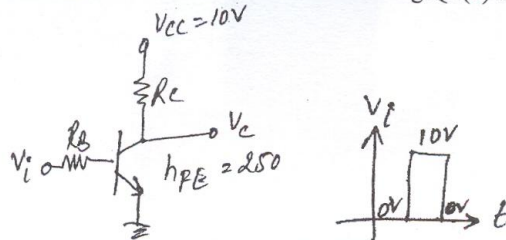 VCC = 10V
RC
VC
RB
Vi
hFE = 250
Vi
10V
0V
0V
t